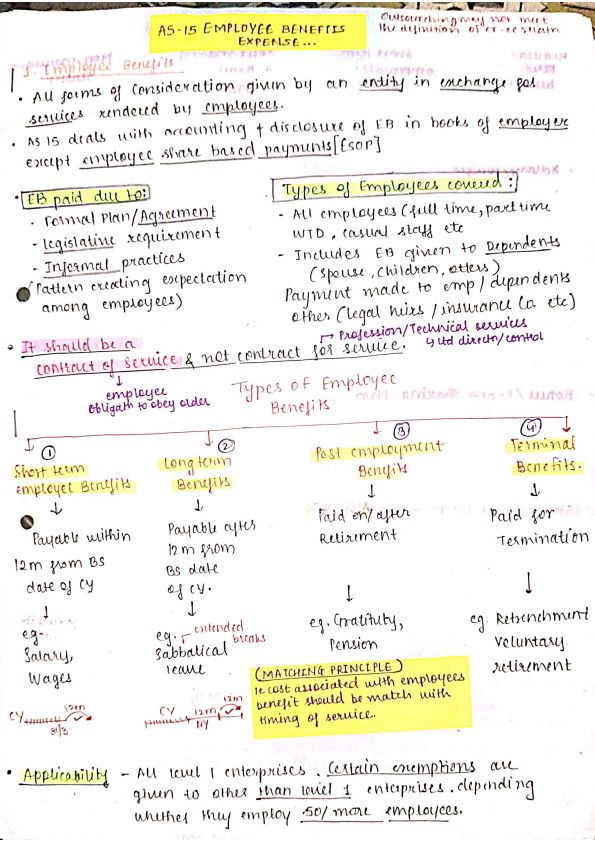 AS-15 EMPLOYEE BENEFITS
EXPENSE...
Outsourcing may not meet
the definition of er-ee relatn
1. Employee Benefits
• All forms of consideration given by an entity in exchange for
services rendered by employees.
• AS 15 deals with accounting & disclosure of EB in books of employer
except employee share based payments [ESOP]
• EB paid due to:
- Formal Plan/Agreement
- Legislative requirement
- Informal practices
(Pattern creating expectation
among employees)
Types of Employees covered:
- All employees (full time, part time
WTD, casual staff etc
- Includes EB given to Dependents
(spouse, children, others)
Payment made to emp/dependents
other (legal heirs/insurance Co. etc)
• It should be a
contract of service & not contract for service.
Profession/Technical services
↳ Ltd directn/control
employee
obligatn to obey order
Types of Employee
Benefits
①
Short term
employee Benefits
↓
Payable within
12m from BS
date of CY
↓
eg.
Salary,
Wages
CY 12m
31/3
②
Long term
Benefits
↓
Payable after
12m from
BS date
of CY.
↓
eg. extended
breaks
Sabbatical
leave
CY 12m 12m
NY
③
Post employment
Benefits
↓
Paid on/after
Retirement
↓
eg. Gratituty,
Pension
④
Terminal
Benefits.
↓
Paid for
Termination
↓
eg. Retrenchment
Voluntary
retirement
(MATCHING PRINCIPLE)
ie cost associated with employees
benefit should be match with
timing of service.
• Applicability - All level 1 enterprises. Certain exemptions are
given to other than level 1 enterprises. depending
whether they employ 50/more employees.